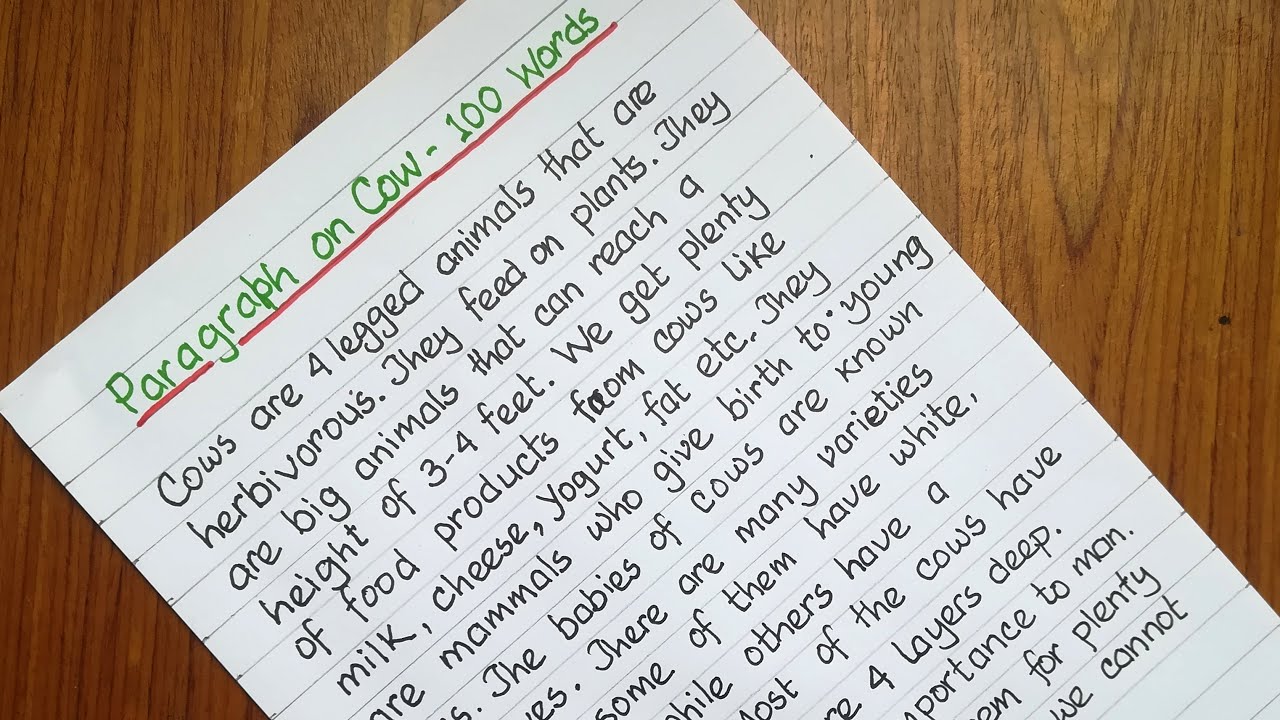 Paragraph on Cow - 100 Words
Cows are 4 legged animals that are
herbivorous. They feed on plants. They
are big animals that can reach a
height of 3-4 feet. We get plenty
of food products from cows like
milk, cheese, yogurt, fat etc. They
are mammals who give birth to young
The babies of cows are known
There are many varieties
some of them have white,
others have a
of the cows have
4 layers deep.
to man.
for plenty
we cannot